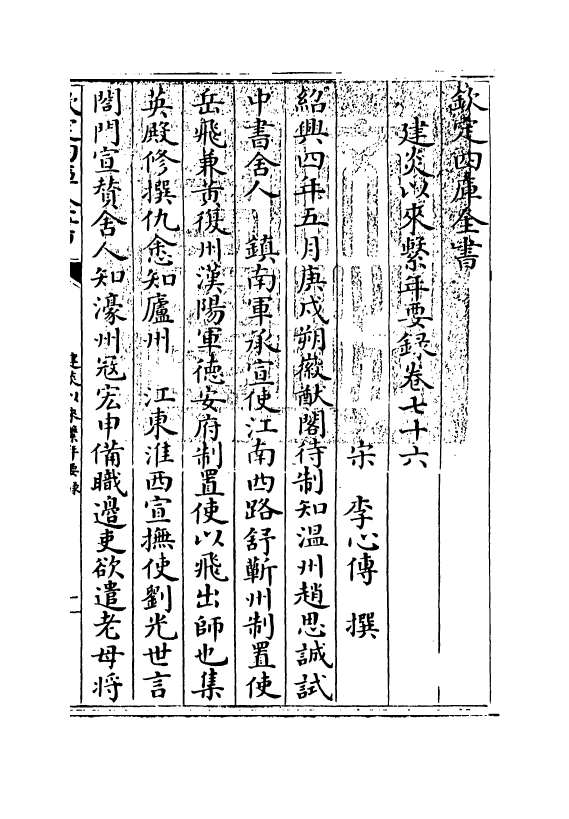 欽定四庫全書
建炎以來繫年要録卷七十六
宋 李心傳 撰
紹興四年五月庚戌朔徽猷閣待制知溫州趙思誠試
中書舍人 鎮南軍承宣使江南西路舒蘄州制置使
岳飛兼黄復州漢陽軍德安府制置使以飛出師也集
英殿修撰仇悆知廬州 江東淮西宣撫使劉光世言
閤門宣賛舍人知濠州冦宏申備職邉吏欲遣老母將
建炎以來繫年要録